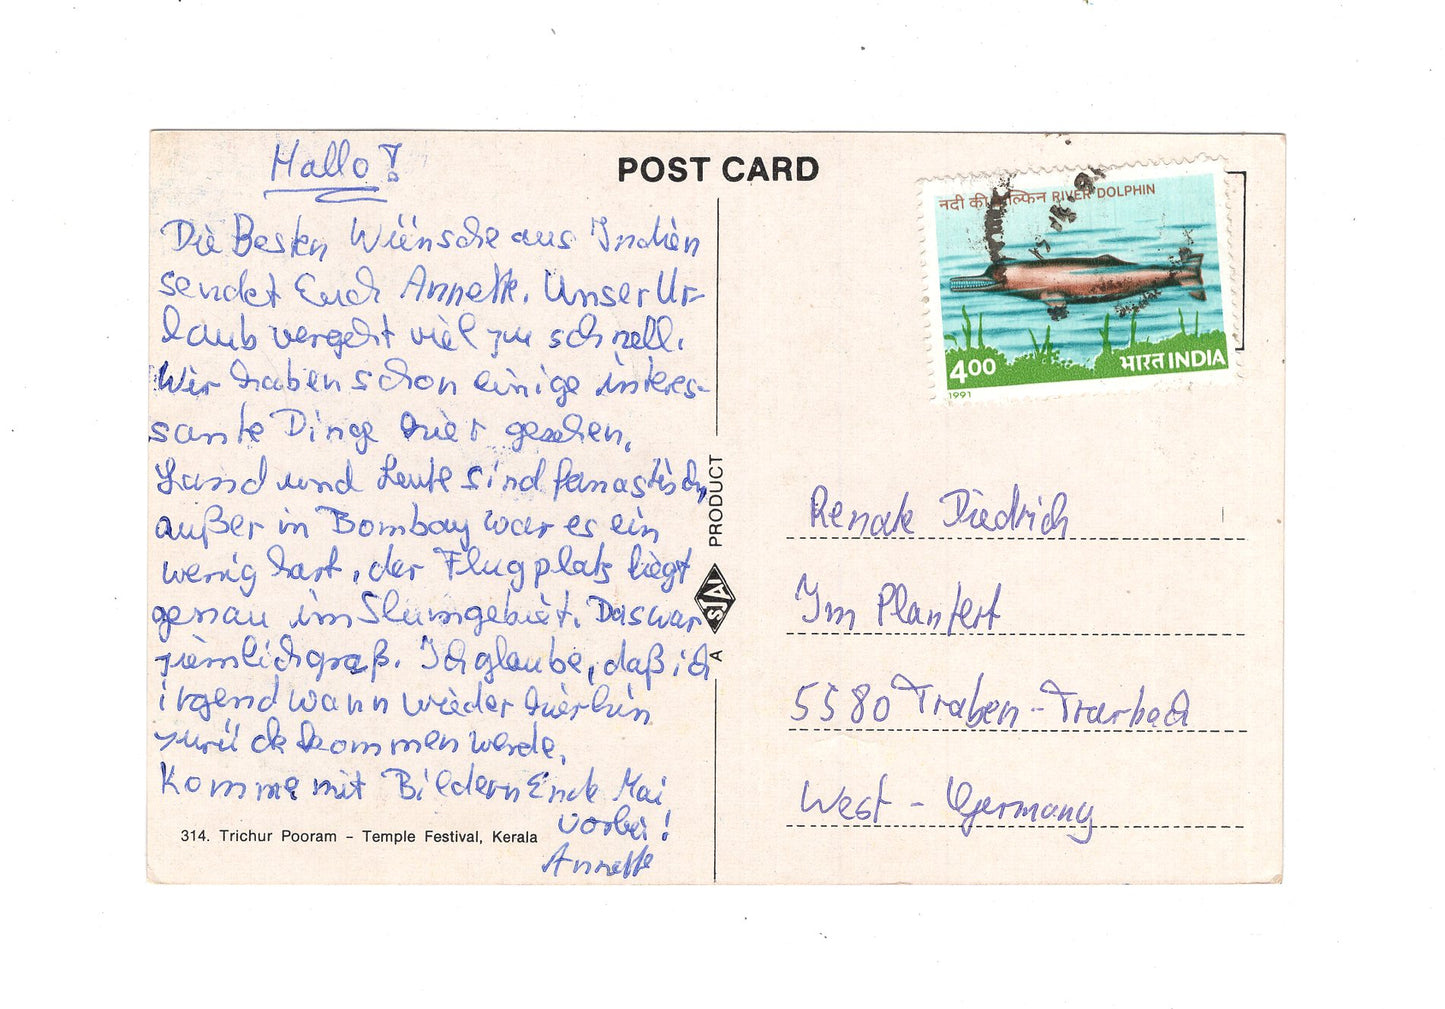 Hallo!
Die Besten Wünsche aus Indien
sendet Euch Annette. Unser Ur-
laub vergeht viel zu schnell.
Wir haben schon einige interes-
sante Dinge hier gesehen.
Land und Leute sind fanastisch,
außer in Bombay war es ein
wenig hart, der Flugplatz liegt
genau im Slumgebiet. Das war
ziemlich graß. Ich glaube, daß ich
irgendwann wieder hierhin
zurück kommen werde.
Komme mit Bildern Ende Mai
vorbei!
Annette
314. Trichur Pooram – Temple Festival, Kerala
POST CARD
A SJAI PRODUCT
नदी की डॉल्फिन RIVER DOLPHIN
4.00 भारत INDIA
1991
Renate Diedrich
Im Planfert
5580 Traben-Trarbach
West-Germany